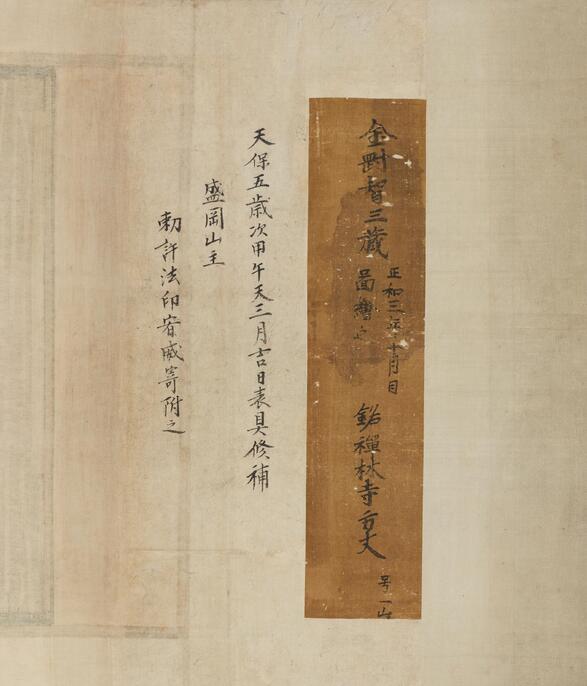 金剛智三蔵
正和三年十月日
圖繪之
銘禪林寺方丈
号一山
天保五歳次甲午天三月吉日表具修補
盛岡山主
勅許法印宥威寄附之